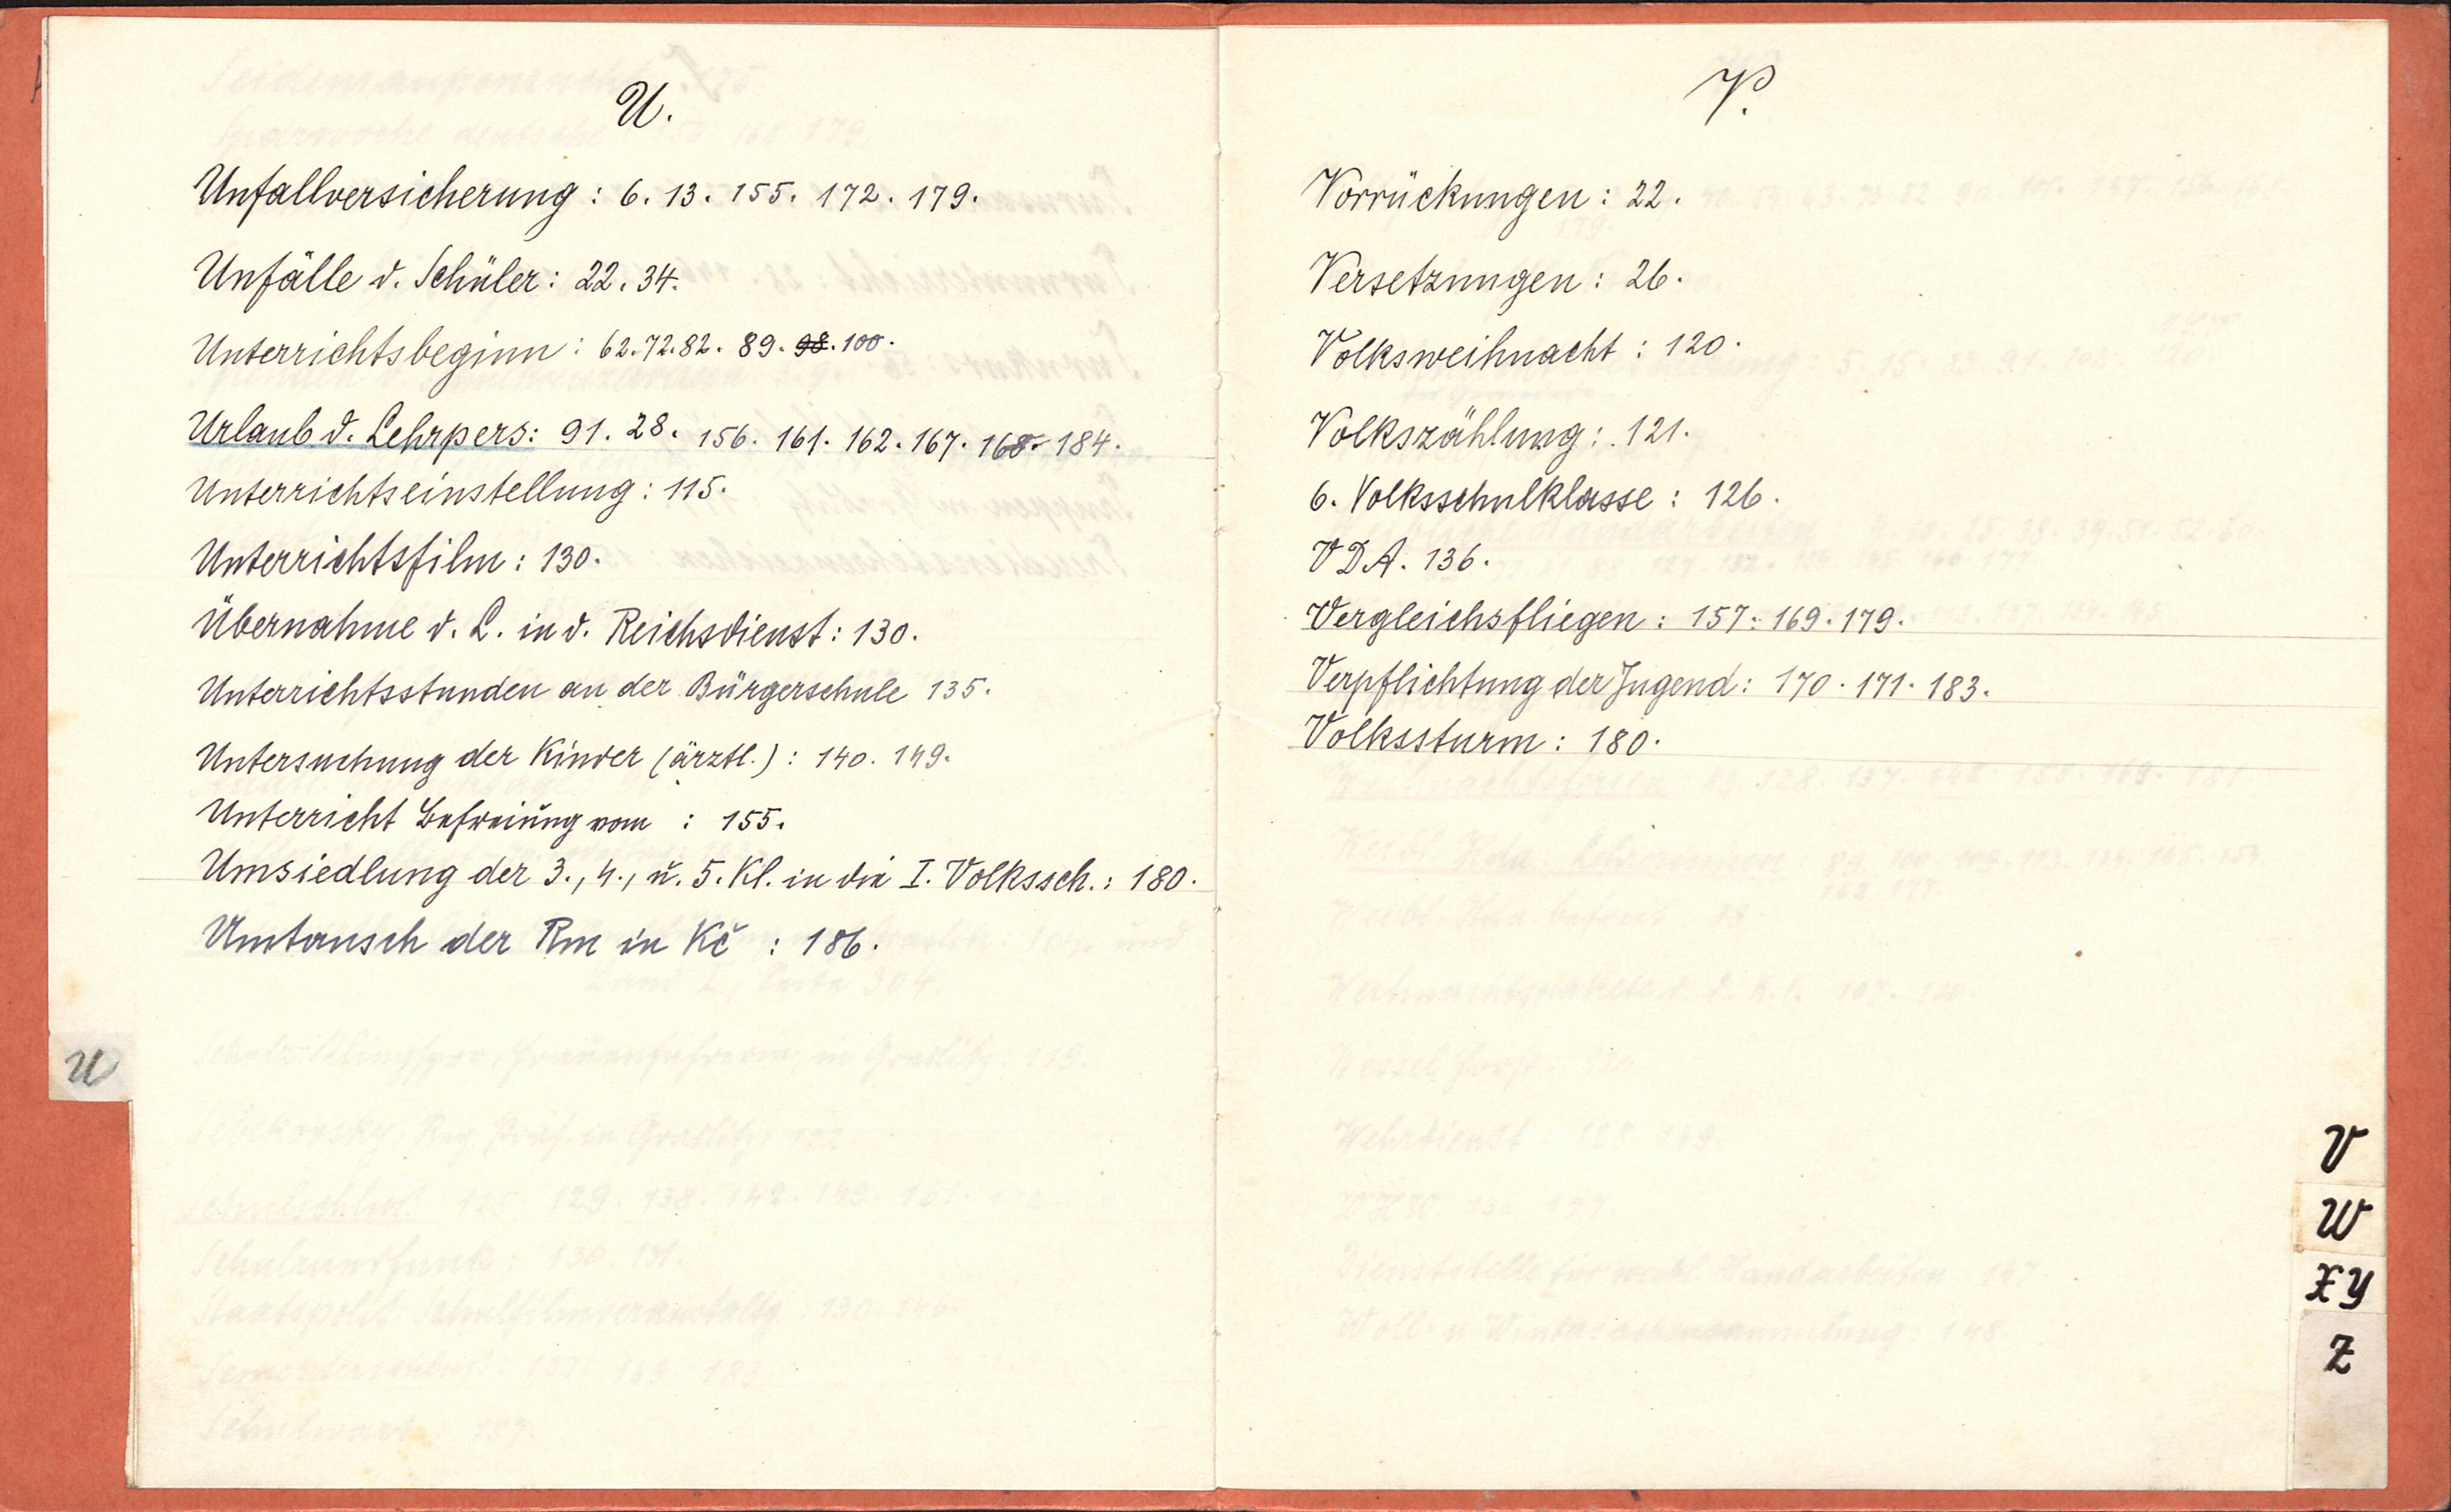 U.
Unfallversicherung: 6. 13. 155. 172. 179.
Unfälle d. Schüler: 22. 34.
Unterrichtsbeginn: 62. 72. 82. 89. 98. 100.
Urlaub d. Lehrpers: 91. 28. 156. 161. 162. 167. 168. 184.
Unterrichtseinstellung: 115.
Unterrichtsfilm: 130.
Übernahme d. L. in d. Reichsdienst: 130.
Unterrichtsstunden an der Bürgerschule 135.
Untersuchung der Kinder (ärztl.): 140. 149.
Unterricht Befreiung vom : 155.
Umsiedlung der 3., 4., u. 5. Kl. in die I. Volkssch.: 180.
Umtausch der Rm in Kč : 186.
U
V.
Vorrückungen: 22.
Versetzungen: 26.
Volksweihnacht: 120.
Volkszählung: 121.
6. Volksschulklasse: 126.
VDA. 136.
Vergleichsfliegen: 157. 169. 179.
Verpflichtung der Jugend: 170. 171. 183.
Volkssturm: 180.
V
W
XY
Z